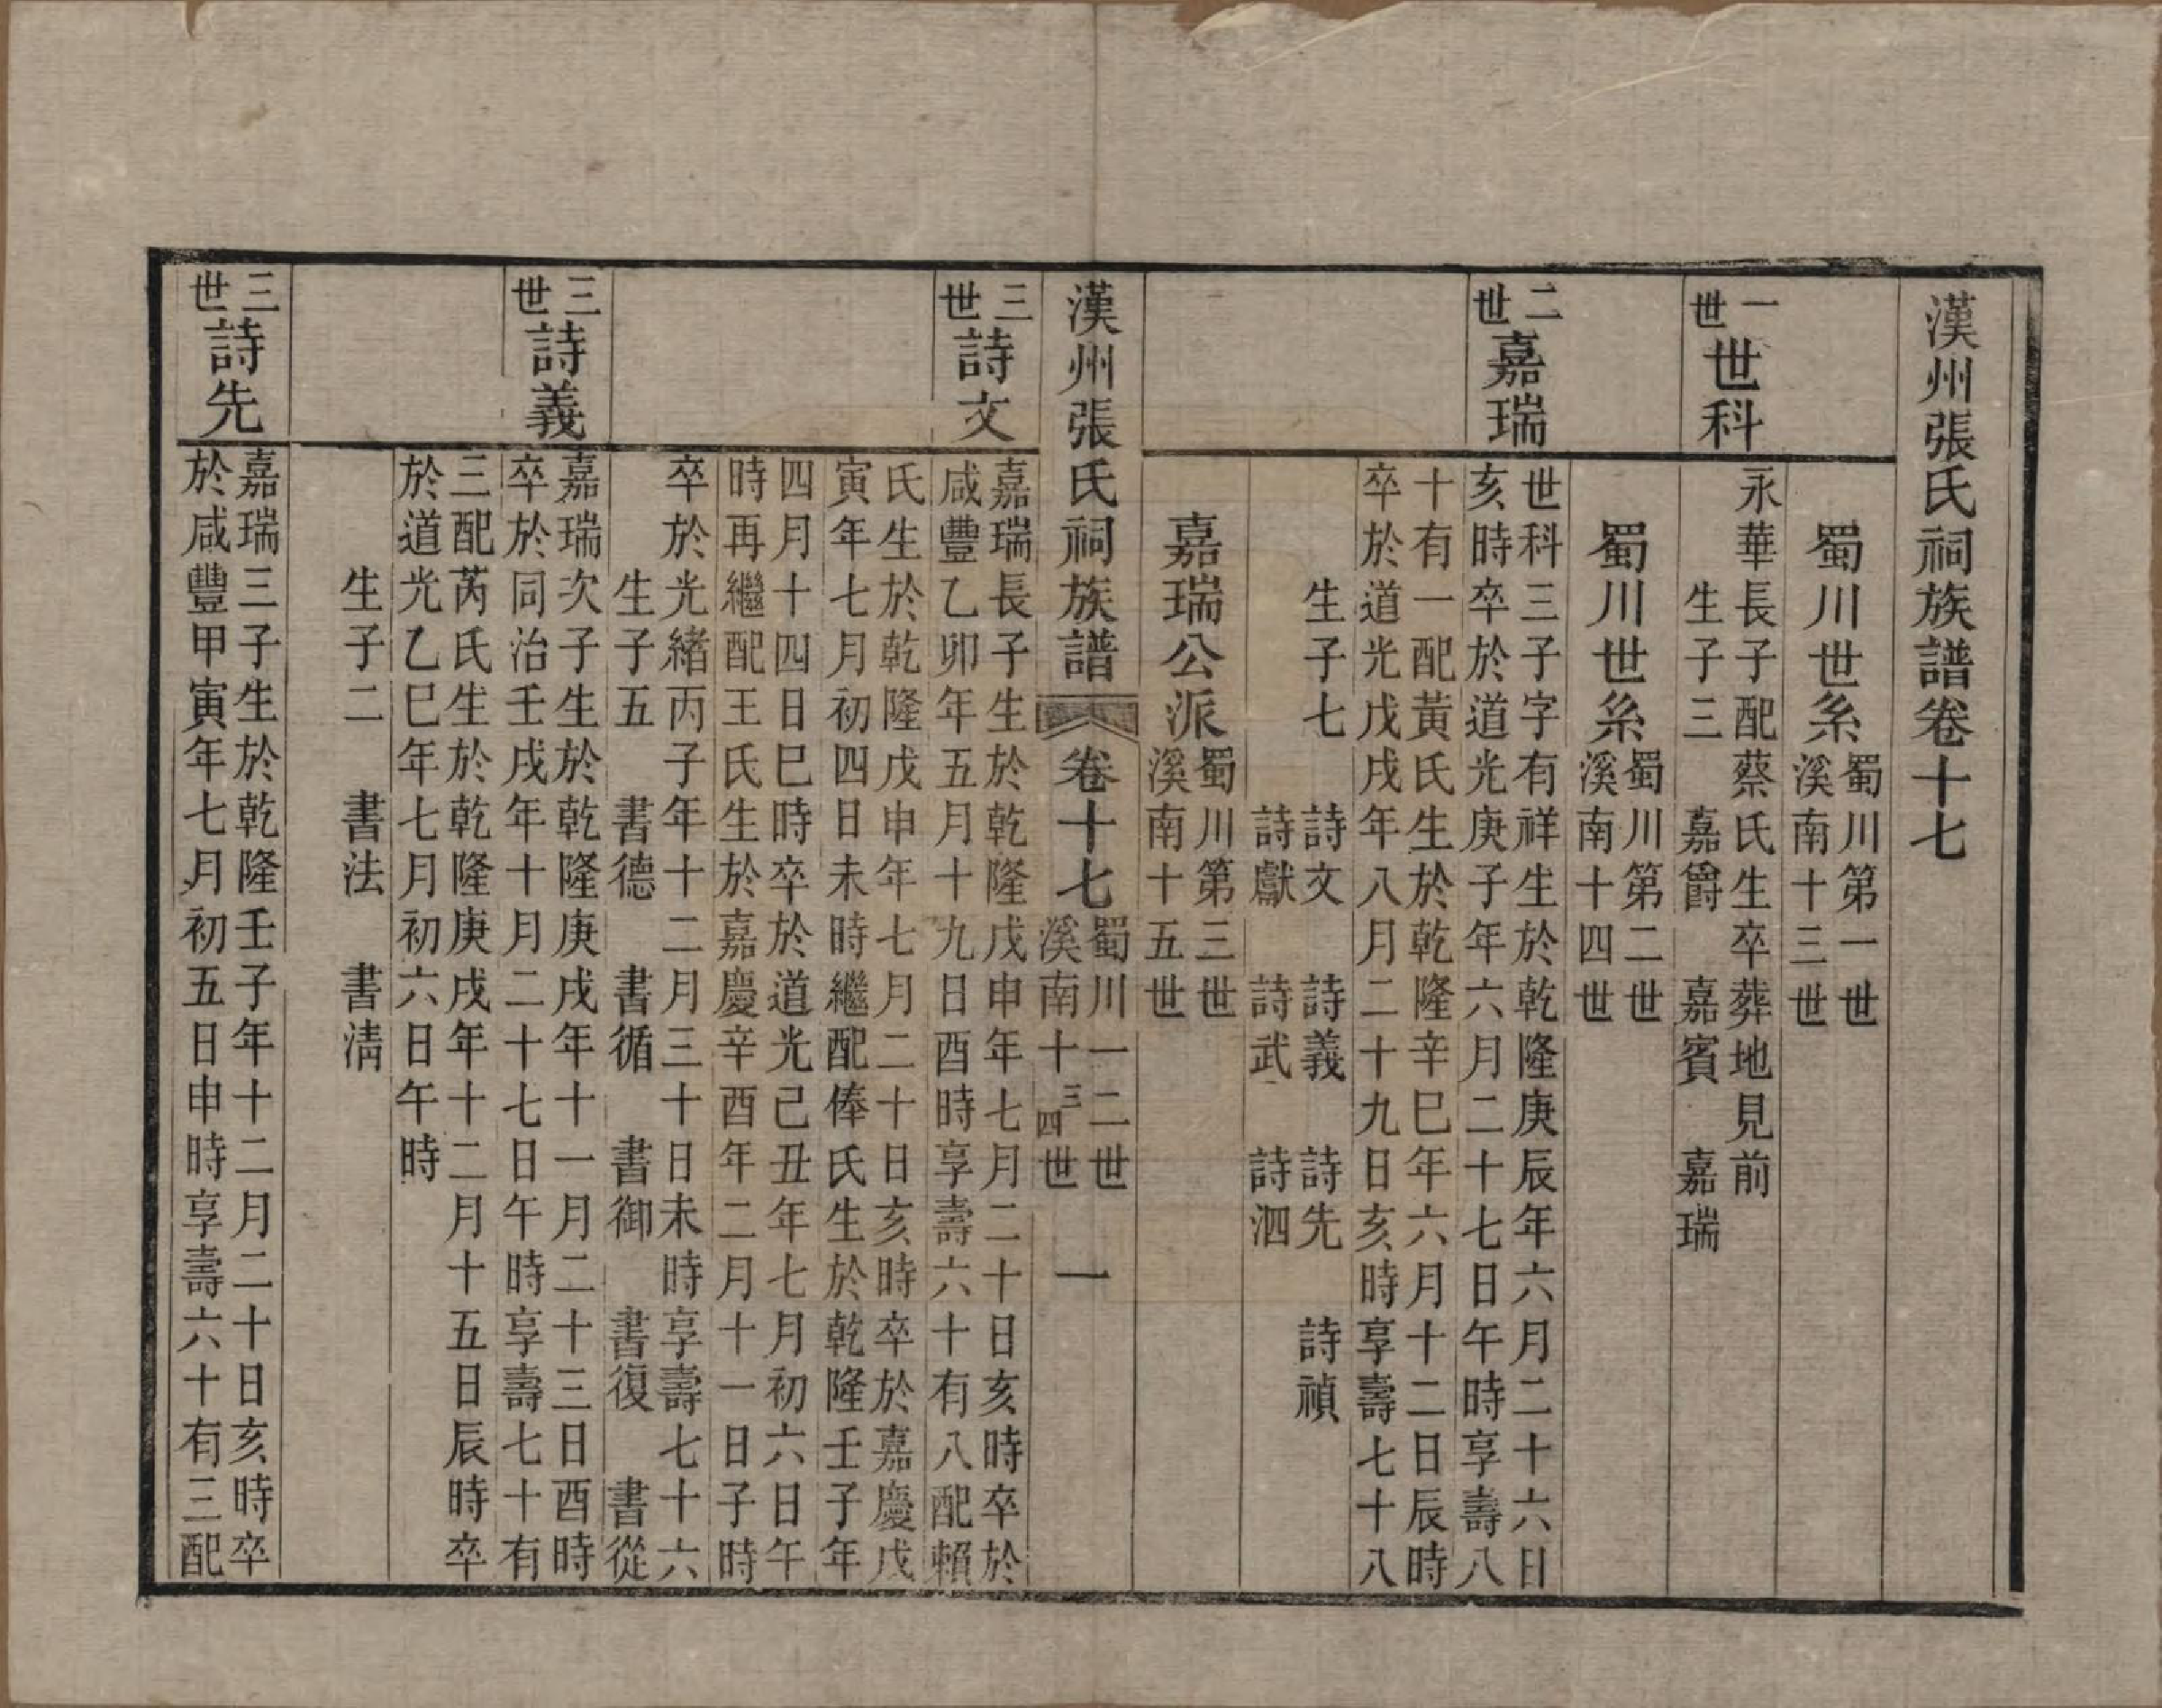 漢州張氏祠族譜卷十七
蜀川世系
蜀川第一世
溪南十三世
一世
世科
永華長子配蔡氏生卒葬地見前
生子三 嘉爵 嘉賓 嘉瑞
蜀川世系
蜀川第二世
溪南十四世
二世
嘉瑞
世科三子字有祥生於乾隆庚辰年六月二十六日
亥時卒於道光庚子年六月二十七日午時享壽八
十有一配黃氏生於乾隆辛巳年六月十二日辰時
卒於道光戊戌年八月二十九日亥時享壽七十八
生子七 詩文 詩義 詩先 詩禎
詩獻 詩武 詩泗
嘉瑞公派
蜀川第三世
溪南十五世
漢州張氏祠族譜
卷十七
蜀川一二世
溪南十三四世
一
三世
詩文
嘉瑞長子生於乾隆戊申年七月二十日亥時卒於
咸豐乙卯年五月十九日酉時享壽六十有八配賴
氏生於乾隆戊申年七月二十日亥時卒於嘉慶戊
寅年七月初四日未時繼配俸氏生於乾隆壬子年
四月十四日巳時卒於道光己丑年七月初六日午
時再繼配王氏生於嘉慶辛酉年二月十一日子時
卒於光緒丙子年十二月三十日未時享壽七十六
生子五 書德 書循 書御 書復 書從
三世
詩義
嘉瑞次子生於乾隆庚戌年十一月二十三日酉時
卒於同治壬戌年十月二十七日午時享壽七十有
三配芮氏生於乾隆庚戌年十二月十五日辰時卒
於道光乙巳年七月初六日午時
生子二 書法 書淸
三世
詩先
嘉瑞三子生於乾隆壬子年十二月二十日亥時卒
於咸豐甲寅年七月初五日申時享壽六十有三配